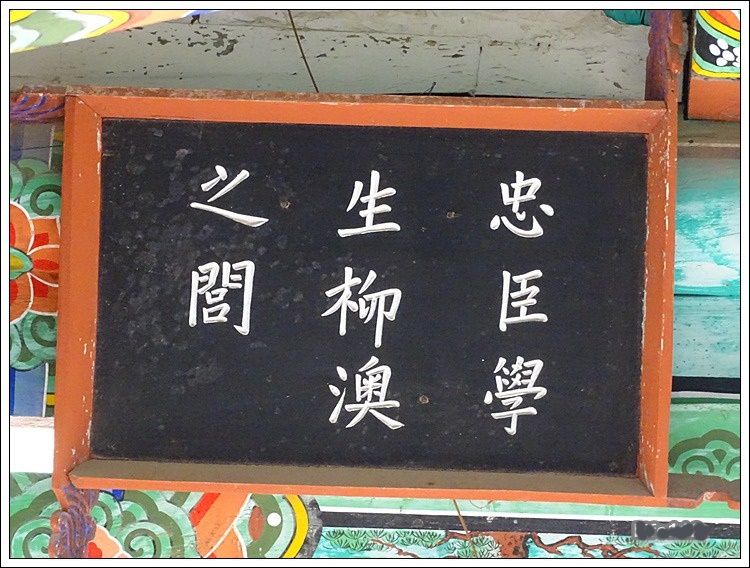 忠臣學
生柳澳
之閭